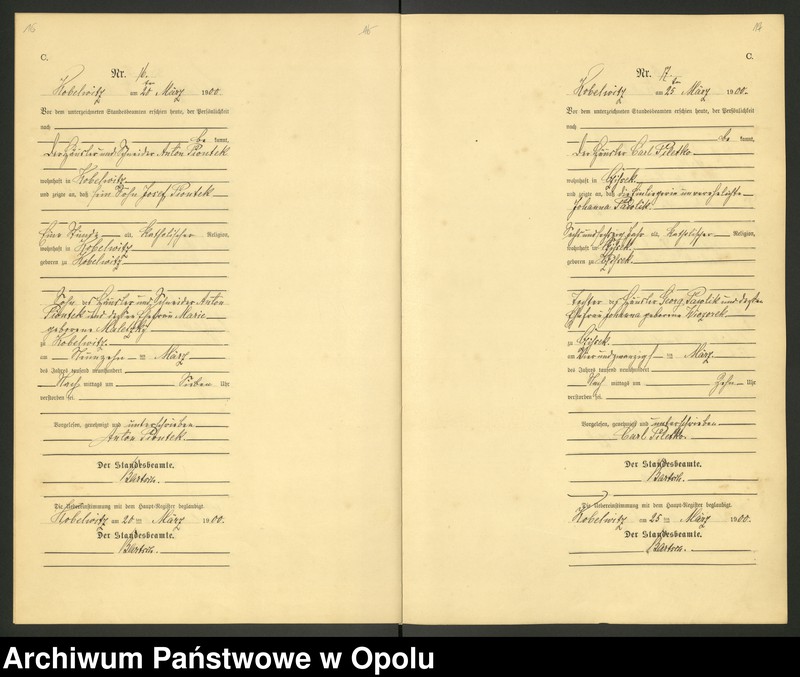 C.
Nr. 16.
Kobelwitz am 20ten März 1900.
Vor dem unterzeichneten Standesbeamten erschien heute, der Persönlichkeit
nach
be kannt,
der Häusler und Schneider Anton Piontek
wohnhaft in Kobelwitz
und zeigte an, daß sein Sohn Josef Piontek
Eine Stunde alt, katholischer Religion,
wohnhaft in Kobelwitz
geboren zu Kobelwitz
Sohn des Häusler und Schneider Anton
Piontek und dessen Ehefrau Marie
geborene
zu Kobelwitz
am Neunzehn ten März
des Jahres tausend neunhundert
Nach mittags um Sieben Uhr
verstorben sei.
Vorgelesen, genehmigt und unterschrieben
Anton Piontek
Der Standesbeamte.
Bartsch.
Die Uebereinstimmung mit dem Haupt-Register beglaubigt.
Kobelwitz am 20ten März 1900.
Der Standesbeamte.
Bartsch.
C.
Nr. 17.
Kobelwitz am 25ten März 1900.
Vor dem unterzeichneten Standesbeamten erschien heute, der Persönlichkeit
nach
be kannt,
der Häusler Carl Piletzko
wohnhaft in
und zeigte an, daß die Einliegerin unverehelichte
Johanna
Sechs und sechzig Jahr alt, katholischer Religion,
wohnhaft in
geboren zu
Tochter des Häusler Georg und dessen
Ehefrau Johanna geborene
zu
am Vier und zwanzigsten März
des Jahres tausend neunhundert
Nach mittags um Zehn Uhr
verstorben sei.
Vorgelesen, genehmigt und unterschrieben
Carl Piletzko.
Der Standesbeamte.
Bartsch.
Die Uebereinstimmung mit dem Haupt-Register beglaubigt.
Kobelwitz am 25ten März 1900.
Der Standesbeamte.
Bartsch.
Archiwum Państwowe w Opolu